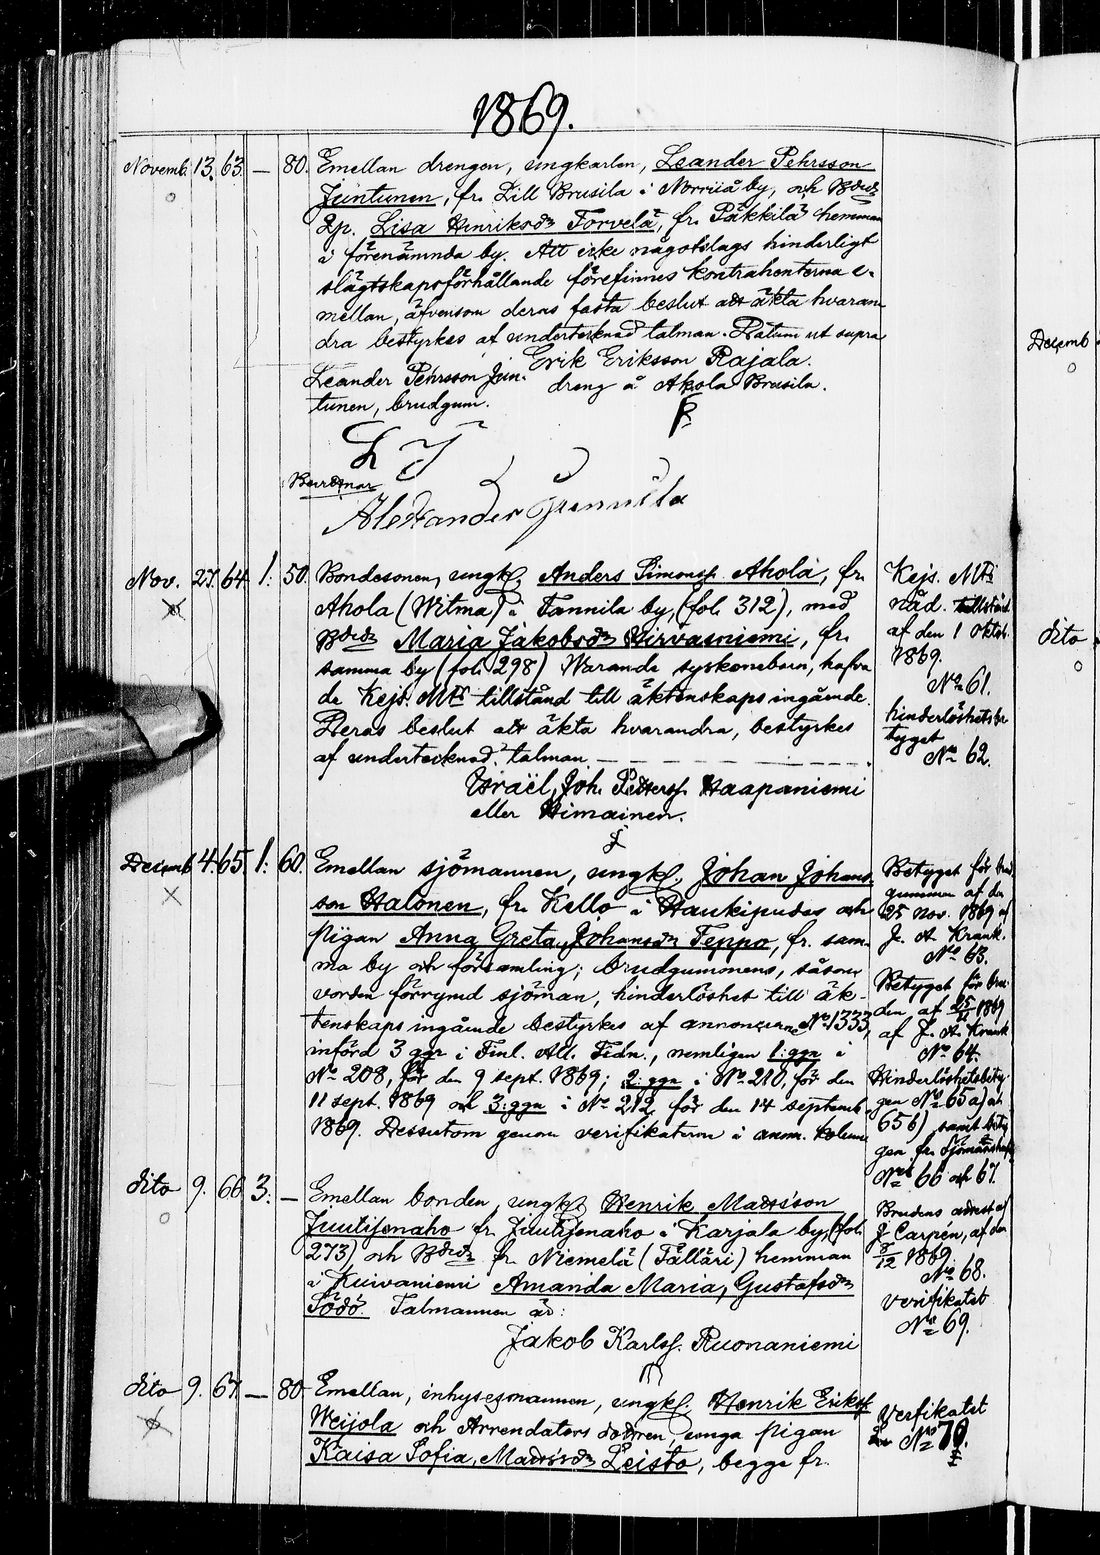 1869.
Novemb. 13. 63. — 80. Emellan drengen, ungkarlen, Leander Pehrsson
Juntunen, fr. Lill Brusila i Norriå by, och Bdrdr
Lisa Henriksdr Torvela, fr. Päkkilä hemman
i förenämnda by. Att icke någotslags hinderligt
slägtskapsförhållande förefinnes kontrahenterna e-
mellan, äfvensom deras fasta beslut att äkta hvaran-
dra bestyrkes af undertecknad talman. Datum ut supra
Erik Eriksson Rajala.
dreng å Akola Brusila.
Leander Pehrsson Jun-
tunen, brudgum.
L J
Alexander
Nov. 27. 64. 1: 50. Bondesonen, ungk. Anders Simonss. Ahola, fr.
Ahola (Witma) i Tannila by, (fol. 312), med
Bdrdr Maria Jakobsdr Hirvasniemi, fr.
samma by (fol. 298) Warande syskonebarn, hafva
de Kejs. Mts tillstånd till äktenskaps ingående.
Deras beslut att äkta hvarandra, bestyrkes
af undertecknad talman. — — — — —
Israël Joh. Pettersf. Haapaniemi
eller Himainen.
Kejs. Mts
nåd. tillstånd
af den 1 Oktob.
1869.
No 61.
hinderlöshetsbe-
tyget
No 62.
Decemb 4. 65. 1: 60. Emellan sjömannen, ungk. Johan Johans-
son Halonen, fr. Kello i Haukipudas och
pigan Anna Greta, Johansdr Teppo, fr. sam-
ma by och församling; brudgummens, såsom
vorden förrymd sjöman, hinderlöshet till äk-
tenskaps ingående bestyrkes af annoncerne No 1333,
införd 3 ggr i Finl. All. Tidn., nemligen 1: ggn i
No 208, för den 9 sept. 1869; 2: ggn i No 210, för den
11 sept. 1869 och 3: ggn i No 212, för den 14 septemb.
1869. Dessutom genom verifikaterna i anm. kolumn
Betyget för brud-
gummen af den
25 Nov. 1869 af
J. A. Krank.
No 63.
Betyget för bru-
den af 25/11 1869
af J. A. Krank
No 64.
Hinderlöshetsbety-
gen No 65 a) och
65 b) samt bety-
gen fr. Sjömanshuset
No 66 och 67.
dito 9. 66. 3. — Emellan bonden, ungk. Henrik Mattsson
Juutijenaho fr. Juutijenaho i Karjala by, (fol.
273) och Bdrdr fr. Niemelä (Tälläri) hemman
i Kuivaniemi Amanda Maria, Gustafsdr
Södö. Talmannen är:
Jakob Karlsf. Ruonaniemi
Brudens attest af
J Carpén, af den
8/12 1869.
No 68.
verifikatet
No 69.
dito 9. 67. — 80. Emellan, inhysesmannen, ungk. Henrik Eriksf
Weijola och Arrendators dottren, unga pigan
Kaisa Sofia, Mattsdr Leisto, begge fr.
Verifikatet
No 70.
Decemb
dito